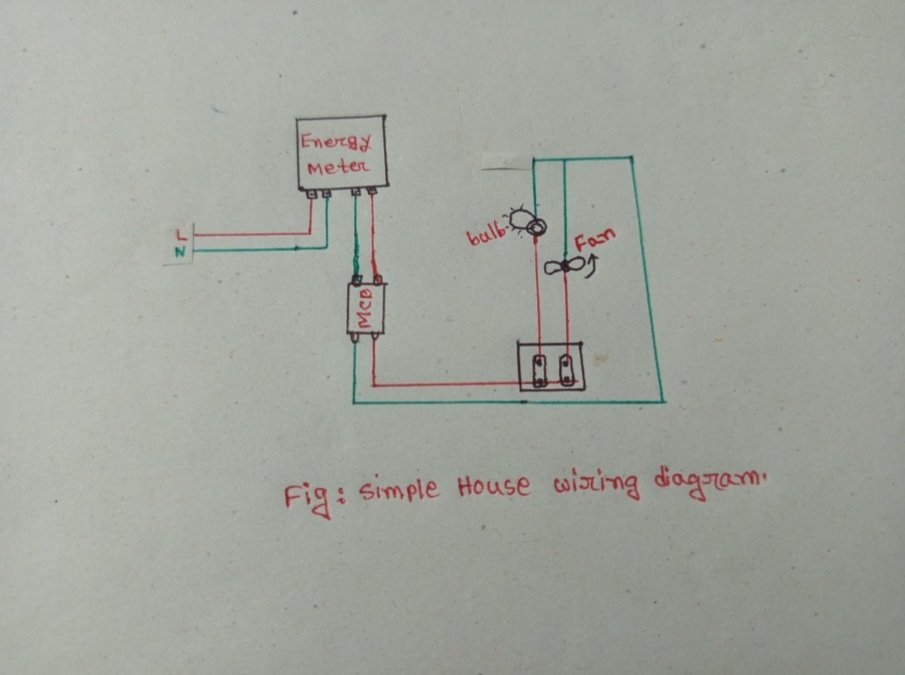 Energy
Meter
L
N
bulb
Fan
MCB
Fig: Simple House wiring diagram.